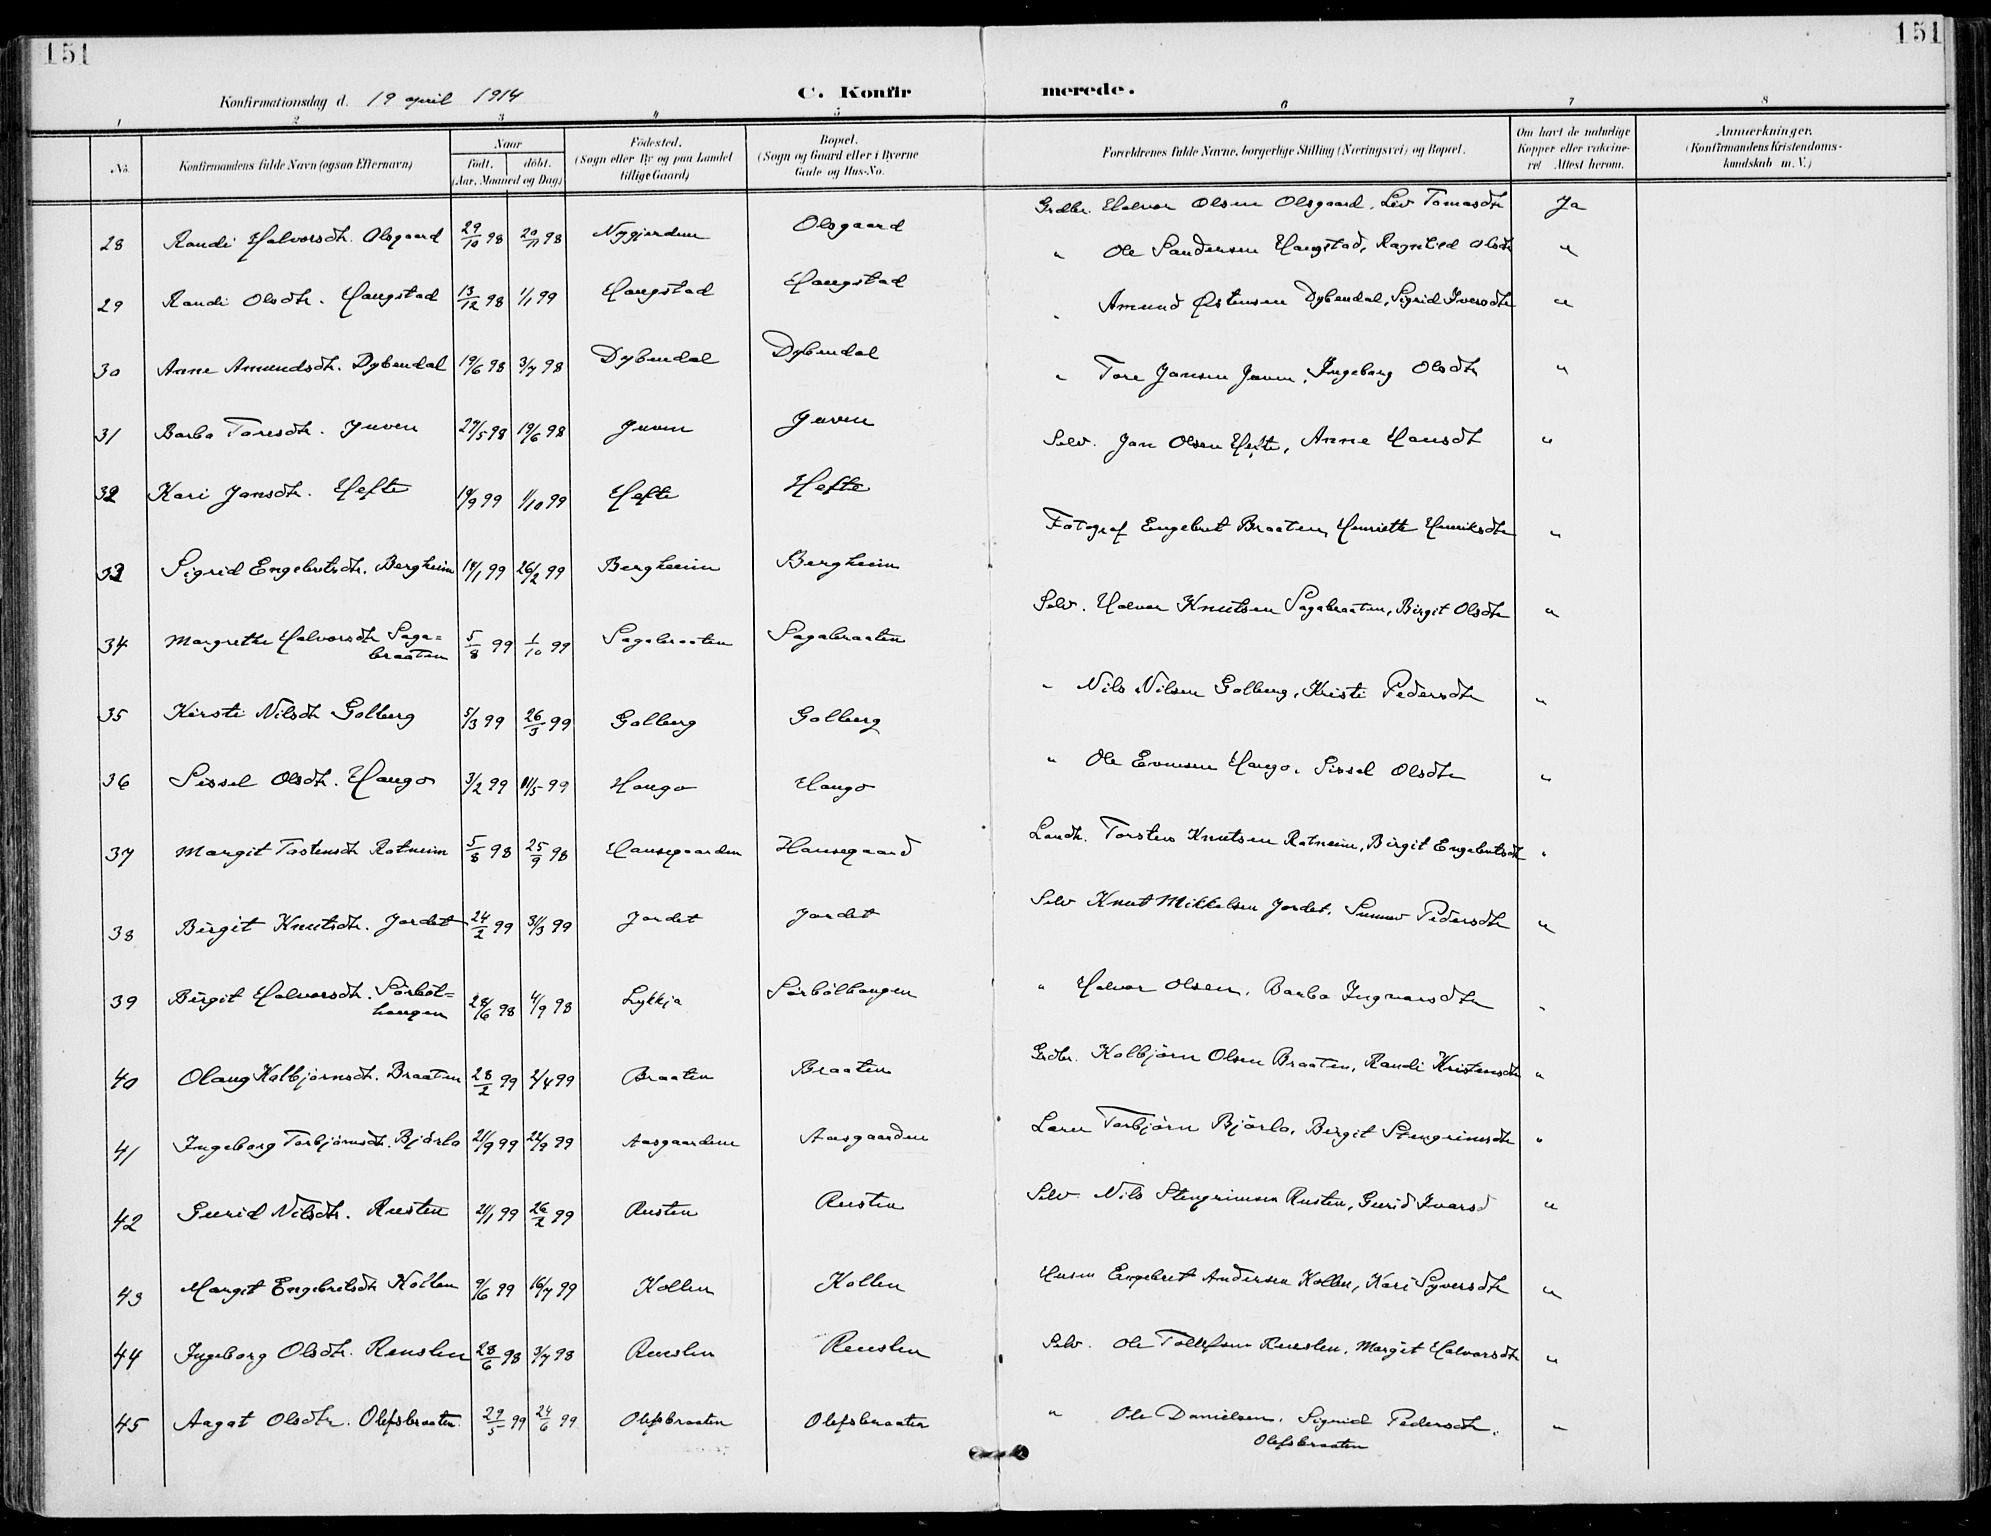 151
151
Konfirmationsdag d. 19 april 1914
C. Konfirmerede.
1 2 3 4 5 6 7 8
No.
Konfirmandens fulde Navn (ogsaa Efternavn)
Naar
födt. döbt.
(Aar, Maaned og Dag)
Födested.
(Sogn eller By og paa Landet
tillige Gaard)
Bopæl.
(Sogn og Gaard eller i Byerne
Gade og Hus-No.
Forældrenes fulde Navne, borgerlige Stilling (Næringsvei) og Bopæl.
Om havt de naturlige
Kopper eller vakcine-
ret Attest herom.
Anmærkninger.
(Konfirmandens Kristendoms-
kundskab m. V.)
28 Randi Halvorsdtr. Olsgaard 29/10 98 20/11 98 Nygjerdene Olsgaard Grdbr. Halvor Olsen Olsgaard, Liv Tomasdtr Ja
29 Randi Olsdtr. Haugstad 13/12 98 1/1 99 Haugstad Haugstad " Ole Sandersen Haugstad, Ragnhild Olsdtr "
30 Anne Amundsdtr. Dybendal 19/6 98 3/7 98 Dybendal Dybendal " Amund Østensen Dybendal, Sigrid Iversdtr "
31 Barbo Toresdtr. Juven 29/5 98 19/6 98 Juven Juven " Tore Jonsen Juven, Ingeborg Olsdtr "
32 Kari Jonsdtr. Hefte 19/9 99 1/10 99 Hefte Hefte Selv. Jon Olsen Hefte, Anne Hansdt "
33 Sigrid Engebretsdtr. Bergheim 14/1 99 26/2 99 Bergheim Bergheim Fotograf Engebret Braaten, Henriette Henriksdtr "
34 Margrethe Halvorsdtr Saga=
braaten 5/8 99 1/10 99 Sagabraaten Sagabraaten Selv. Halvor Knutsen Sagabraaten, Birgit Olsdtr "
35 Kirsti Nilsdtr Golberg 5/3 99 26/3 99 Golberg Golberg " Nils Nilsen Golberg, Kristi Pedersdtr "
36 Sissel Olsdtr. Haugo 3/2 99 11/5 99 Haugo Haugo " Ole Evensen Haugo. Sissel Olsdtr "
37 Margit Tostensdtr Rotneim 5/8 98 25/9 98 Hansegaarden Hansegaard Landh. Torsten Knutsen Rotneim, Birgit Engebretsdtr "
38 Birgit Knutsdtr. Jordet 24/2 99 31/3 99 Jordet Jordet Selv Knut Mikkelsen Jordet, Sunnev Pedersdtr "
39 Birgit Halvorsdtr. Sørbøl=
haugen 28/6 98 4/9 98 Lykkja Sørbølhaugen " Halvor Olsen, Barbo Ingvarsdtr "
40 Olaug Kolbjørnsdt. Braaten 28/2 99 2/4 99 Braaten Braaten Grdbr. Kolbjörn Olsen Braaten, Randi Kristensdtr "
41 Ingeborg Torbjørnsdt. Björlo 21/9 99 22/9 99 Aasgaardene Aasgaardene Lærer Torbjörn Björlo, Birgit Stengrimsdtr "
42 Gurid Nilsdtr. Rusten 21/1 99 26/2 99 Rusten Rusten Selv Nils Stengrimsen Rusten, Gurid Ivarsd "
43 Margit Engebretsdtr Kollen 9/6 99 16/7 99 Kollen Kollen Husm Engebret Andersen Kollen, Kari Syversdtr "
44 Ingeborg Olsdtr. Renslen 28/6 98 3/7 98 Renslen Renslen Selv. Ole Tollefsen Renslen, Margit Halvorsdtr "
45 Aagot Olsdtr. Olefsbraaten 29/5 99 24/6 99 Olefsbraaten Olefsbraaten " Ole Danielsen, Sigrid Pedersdtr.
Olefsbraaten "